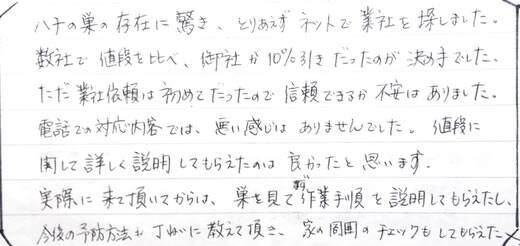 ハチの巣の存在に驚き、とりあえずネットで業社を探しました。
数社で値段を比べ、御社が10%引きだったのが決め手でした。
ただ業社依頼は初めてだったので信頼できるか不安はありました。
電話での対応内容では、悪い感じはありませんでした。値段に
関して詳しく説明してもらえたのは良かったと思います。
実際に来て頂いてからは、巣を見てまず作業手順を説明してもらえたし、
今後の予防方法も丁ねいに教えて頂き、家の周囲のチェックもしてもらえた